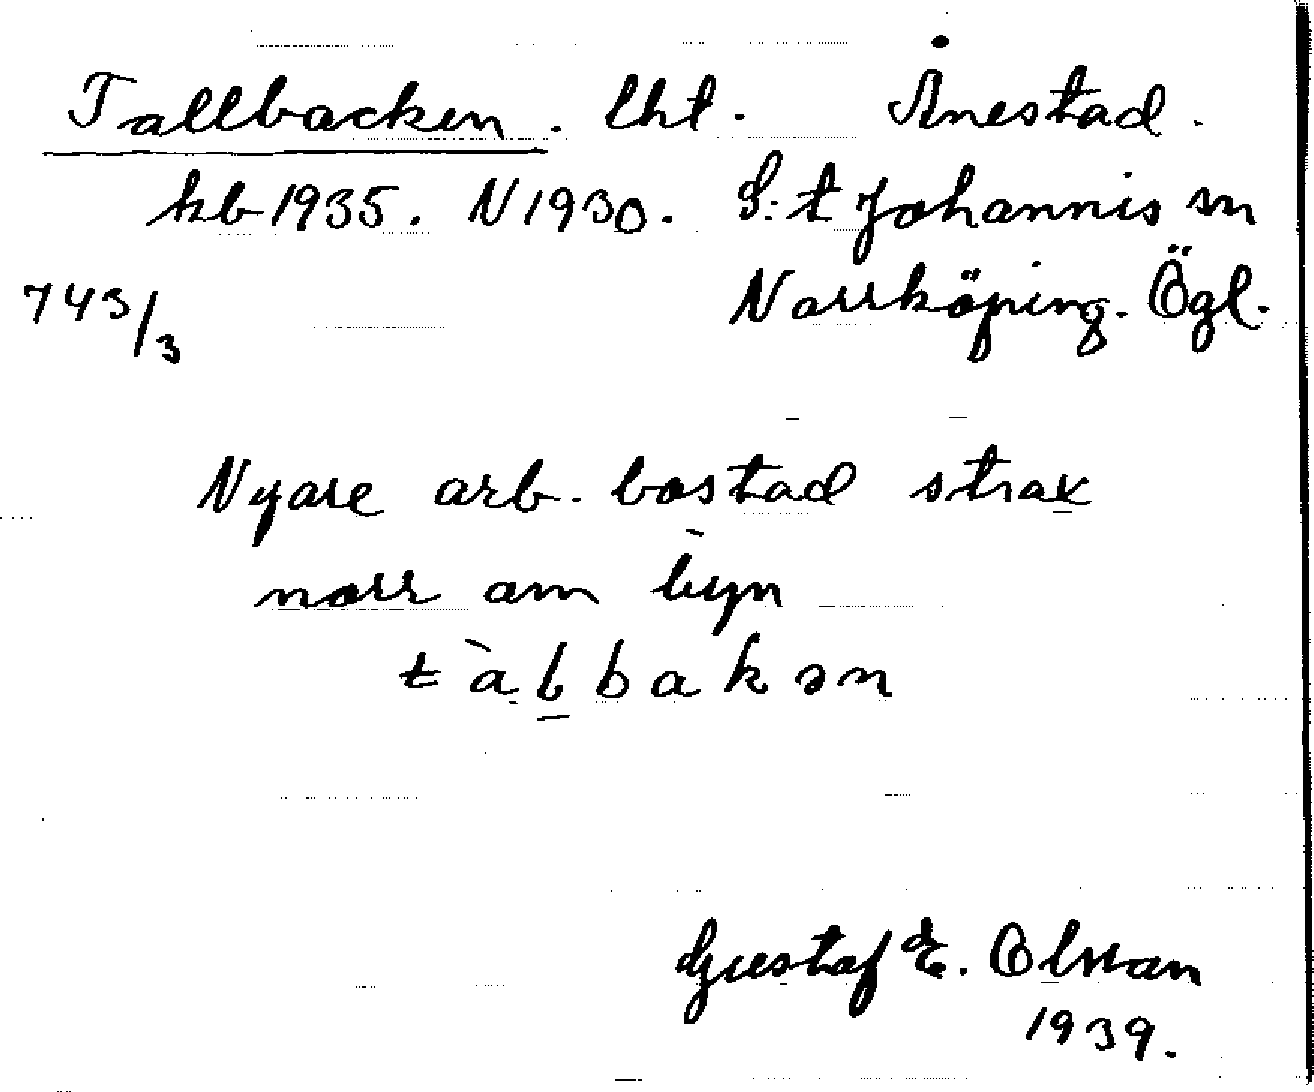 Tallbacken. lht. Ånestad.
kb 1935. N 1930. S:t Johannis sn
743/3 Norrköping. Ögl.
Nyare arb. bostad strax
norr om byn
tàḷbakən
Gustaf E. Olsson
1939.